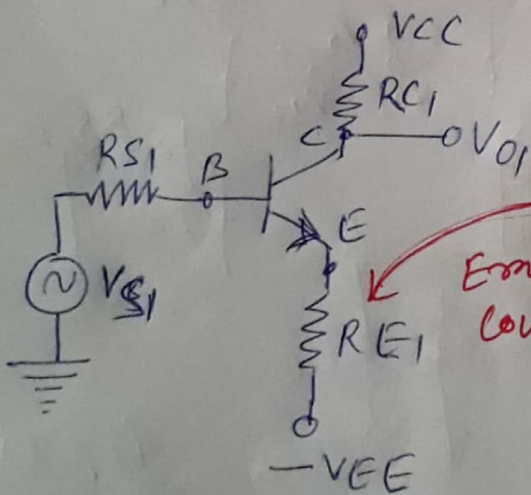 VCC
RC1
C
VO1
RS1
B
E
VS1
RE1
-VEE